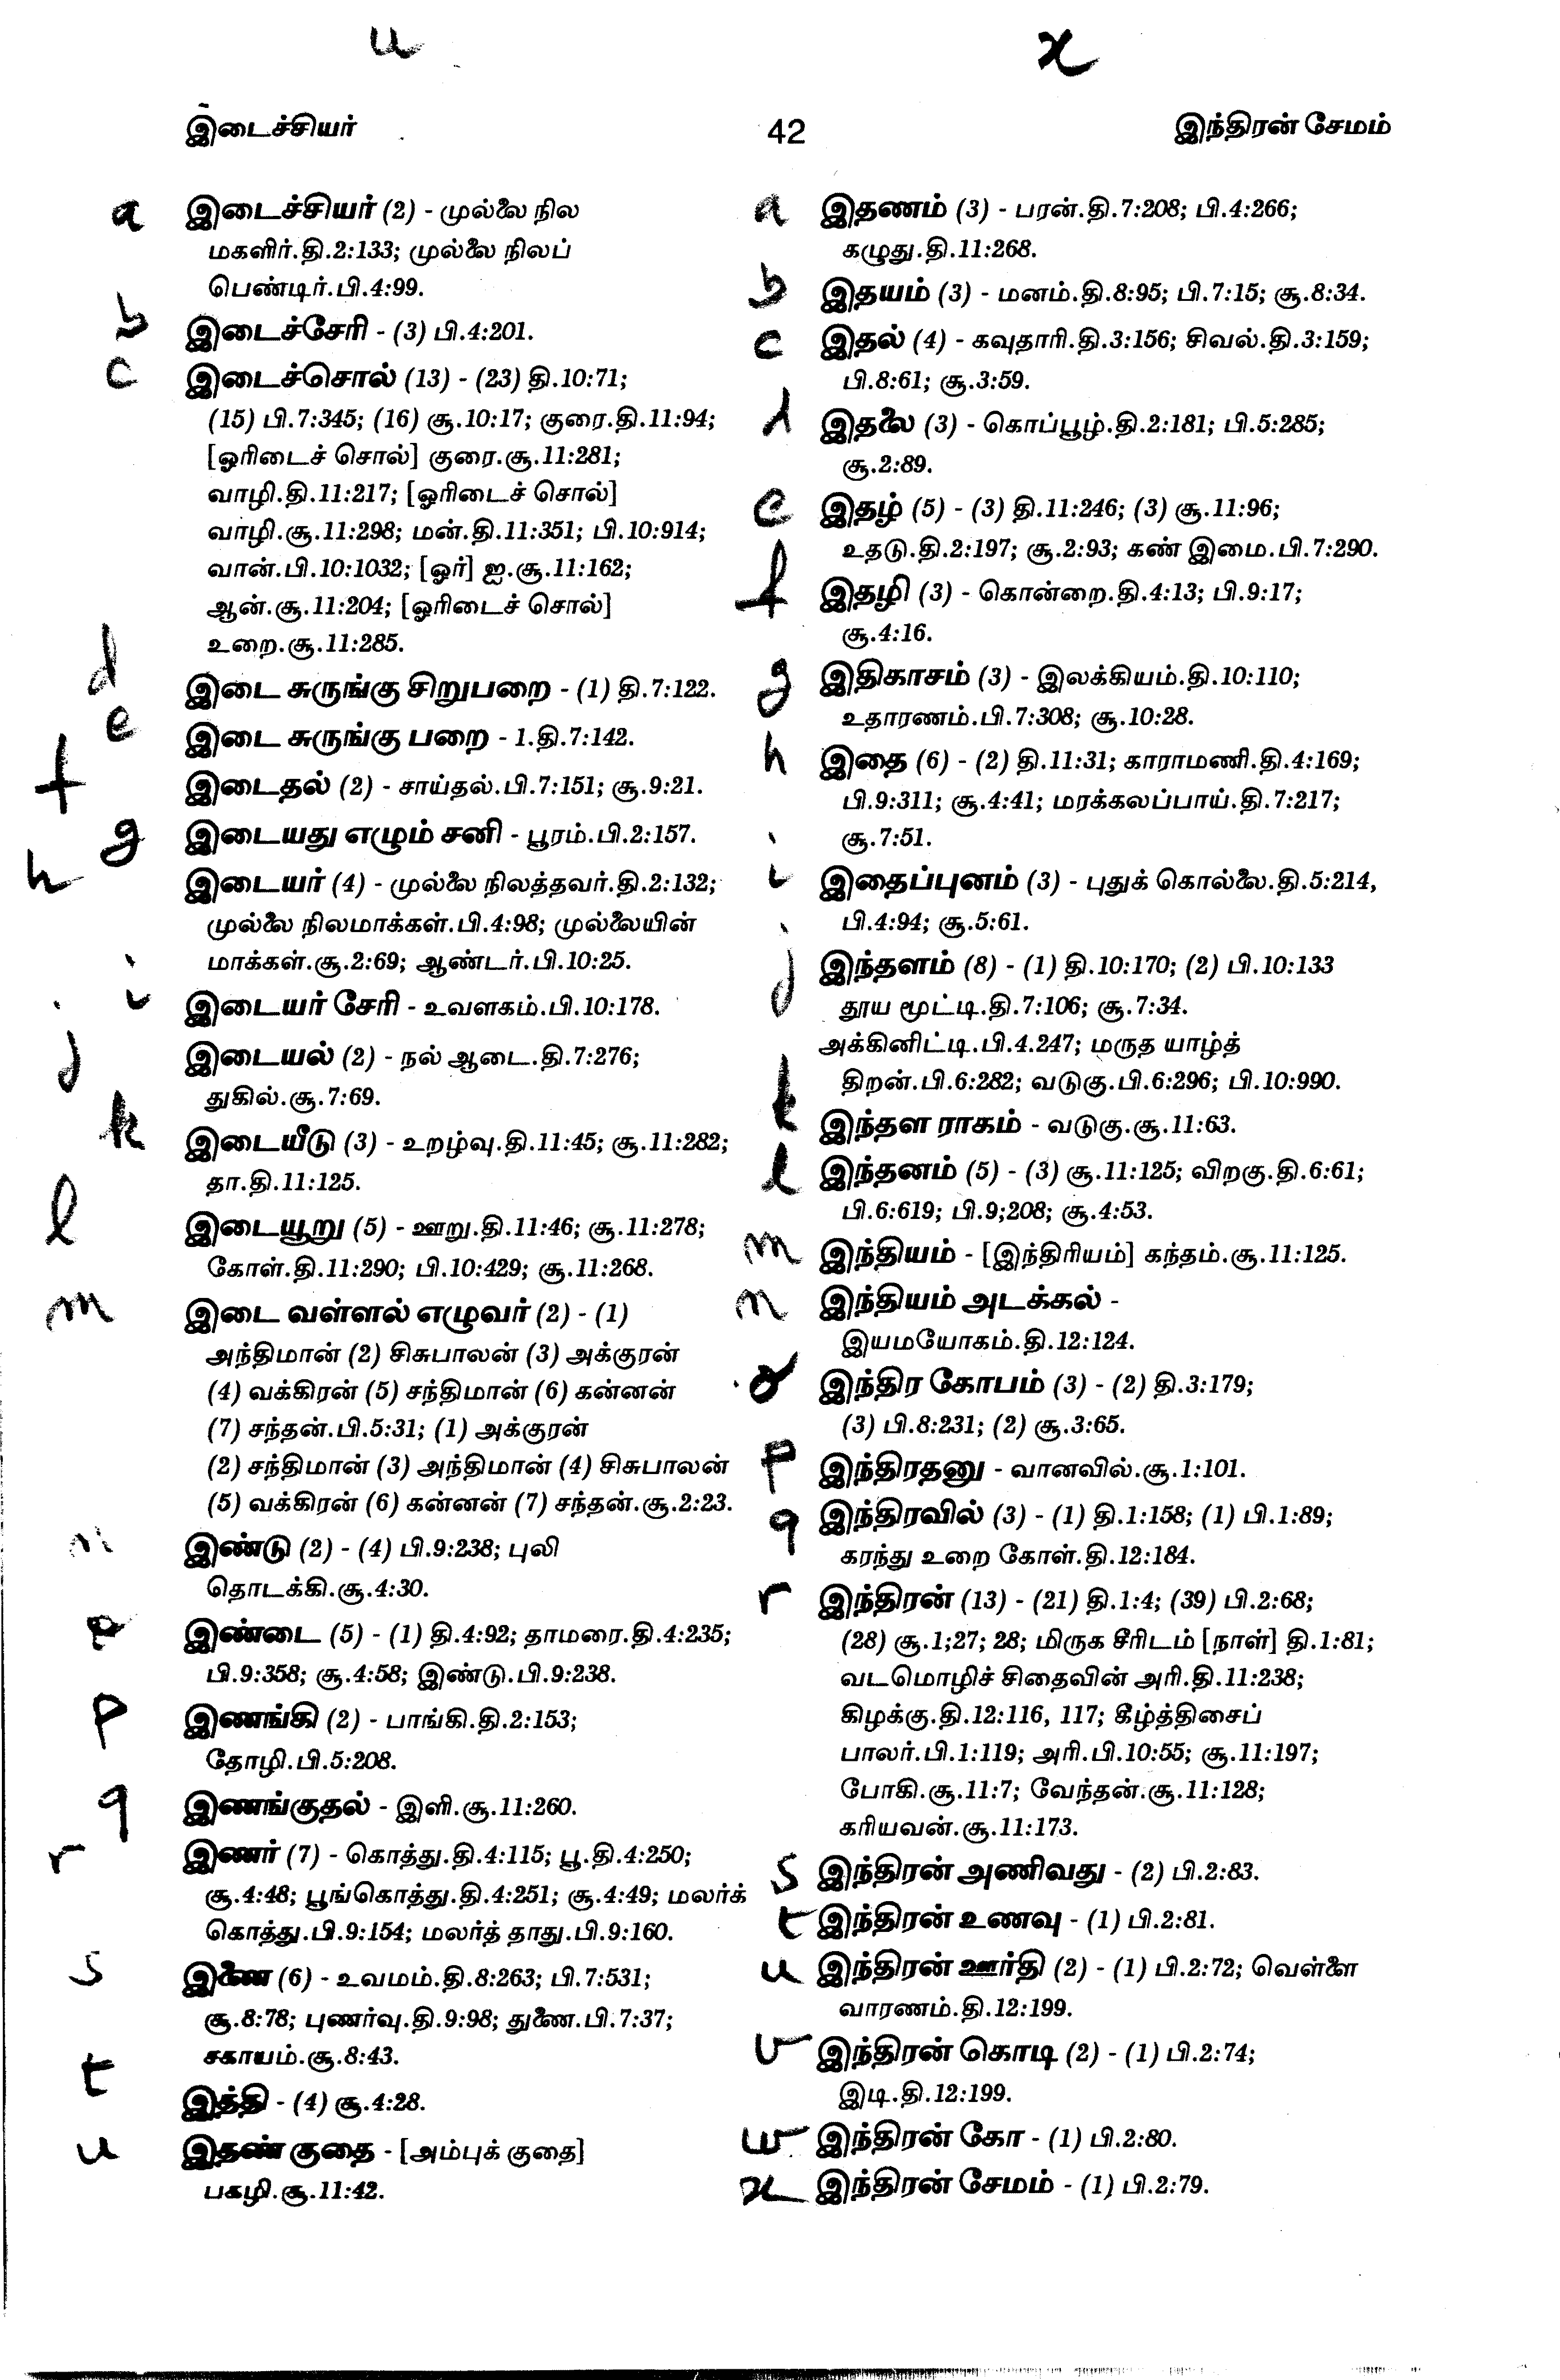 u
x
இடைச்சியர் 42 இந்திரன் சேமம்
a இடைச்சியர் (2) - முல்லை நில
மகளிர்.தி.2:133; முல்லை நிலப்
பெண்டிர்.பி.4:99.
b இடைச்சேரி - (3) பி.4:201.
c இடைச்சொல் (13) - (23) தி.10:71;
(15) பி.7:345; (16) சூ.10:17; குரை.தி.11:94;
[ஓரிடைச் சொல்] குரை.சூ.11:281;
வாழி.தி.11:217; [ஓரிடைச் சொல்]
வாழி.சூ.11:298; மன்.தி.11:351; பி.10:914;
வான்.பி.10:1032; [ஓர்] ஐ.சூ.11:162;
ஆன்.சூ.11:204; [ஓரிடைச் சொல்]
உறை.சூ.11:285.
d இடை சுருங்கு சிறுபறை - (1) தி.7:122.
e இடை சுருங்கு பறை - 1.தி.7:142.
f இடைதல் (2) - சாய்தல்.பி.7:151; சூ.9:21.
g இடையது எழும் சனி - பூரம்.பி.2:157.
h இடையர் (4) - முல்லை நிலத்தவர்.தி.2:132;
முல்லை நிலமாக்கள்.பி.4:98; முல்லையின்
மாக்கள்.சூ.2:69; ஆண்டர்.பி.10:25.
i இடையர் சேரி - உவளகம்.பி.10:178.
j இடையல் (2) - நல் ஆடை.தி.7:276;
துகில்.சூ.7:69.
k இடையீடு (3) - உறழ்வு.தி.11:45; சூ.11:282;
தா.தி.11:125.
l இடையூறு (5) - ஊறு.தி.11:46; சூ.11:278;
கோள்.தி.11:290; பி.10:429; சூ.11:268.
m இடை வள்ளல் எழுவர் (2) - (1)
அந்திமான் (2) சிசுபாலன் (3) அக்குரன்
(4) வக்கிரன் (5) சந்திமான் (6) கன்னன்
(7) சந்தன்.பி.5:31; (1) அக்குரன்
(2) சந்திமான் (3) அந்திமான் (4) சிசுபாலன்
(5) வக்கிரன் (6) கன்னன் (7) சந்தன்.சூ.2:23.
n இண்டு (2) - (4) பி.9:238; புலி
தொடக்கி.சூ.4:30.
இண்டை (5) - (1) தி.4:92; தாமரை.தி.4:235;
பி.9:358; சூ.4:58; இண்டு.பி.9:238.
p இணங்கி (2) - பாங்கி.தி.2:153;
தோழி.பி.5:208.
q இணங்குதல் - இளி.சூ.11:260.
r இணர் (7) - கொத்து.தி.4:115; பூ.தி.4:250;
சூ.4:48; பூங்கொத்து.தி.4:251; சூ.4:49; மலர்க்
கொத்து.பி.9:154; மலர்த் தாது.பி.9:160.
s இணை (6) - உவமம்.தி.8:263; பி.7:531;
சூ.8:78; புணர்வு.தி.9:98; துணை.பி.7:37;
சகாயம்.சூ.8:43.
t இத்தி - (4) சூ.4:28.
u இதண் குதை - [அம்புக் குதை]
பகழி.சூ.11:42.
a இதணம் (3) - பரன்.தி.7:208; பி.4:266;
கழுது.தி.11:268.
b இதயம் (3) - மனம்.தி.8:95; பி.7:15; சூ.8:34.
c இதல் (4) - கவுதாரி.தி.3:156; சிவல்.தி.3:159;
பி.8:61; சூ.3:59.
d இதலை (3) - கொப்பூழ்.தி.2:181; பி.5:285;
சூ.2:89.
e இதழ் (5) - (3) தி.11:246; (3) சூ.11:96;
உதடு.தி.2:197; சூ.2:93; கண் இமை.பி.7:290.
f இதழி (3) - கொன்றை.தி.4:13; பி.9:17;
சூ.4:16.
g இதிகாசம் (3) - இலக்கியம்.தி.10:110;
உதாரணம்.பி.7:308; சூ.10:28.
h இதை (6) - (2) தி.11:31; காராமணி.தி.4:169;
பி.9:311; சூ.4:41; மரக்கலப்பாய்.தி.7:217;
சூ.7:51.
i இதைப்புனம் (3) - புதுக் கொல்லை.தி.5:214,
பி.4:94; சூ.5:61.
j இந்தளம் (8) - (1) தி.10:170; (2) பி.10:133
தூய மூட்டி.தி.7:106; சூ.7:34.
அக்கினிட்டி.பி.4.247; மருத யாழ்த்
திறன்.பி.6:282; வடுகு.பி.6:296; பி.10:990.
k இந்தள ராகம் - வடுகு.சூ.11:63.
l இந்தனம் (5) - (3) சூ.11:125; விறகு.தி.6:61;
பி.6:619; பி.9;208; சூ.4:53.
m இந்தியம் - [இந்திரியம்] கந்தம்.சூ.11:125.
n இந்தியம் அடக்கல் -
இயமயோகம்.தி.12:124.
o இந்திர கோபம் (3) - (2) தி.3:179;
(3) பி.8:231; (2) சூ.3:65.
p இந்திரதனு - வானவில்.சூ.1:101.
q இந்திரவில் (3) - (1) தி.1:158; (1) பி.1:89;
கரந்து உறை கோள்.தி.12:184.
r இந்திரன் (13) - (21) தி.1:4; (39) பி.2:68;
(28) சூ.1;27; 28; மிருக சீரிடம் [நாள்] தி.1:81;
வடமொழிச் சிதைவின் அரி.தி.11:238;
கிழக்கு.தி.12:116, 117; கீழ்த்திசைப்
பாலர்.பி.1:119; அரி.பி.10:55; சூ.11:197;
போகி.சூ.11:7; வேந்தன்.சூ.11:128;
கரியவன்.சூ.11:173.
s இந்திரன் அணிவது - (2) பி.2:83.
t இந்திரன் உணவு - (1) பி.2:81.
u இந்திரன் ஊர்தி (2) - (1) பி.2:72; வெள்ளை
வாரணம்.தி.12:199.
v இந்திரன் கொடி (2) - (1) பி.2:74;
இடி.தி.12:199.
w இந்திரன் கோ - (1) பி.2:80.
x இந்திரன் சேமம் - (1) பி.2:79.